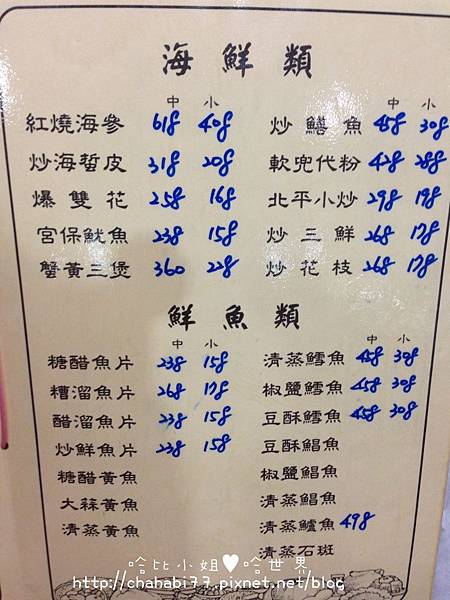 海鮮類
中 小
紅燒海參 618 408
炒海蜇皮 318 208
爆雙花 258 168
宮保魷魚 238 158
蟹黃三煲 360 228
中 小
炒鱔魚 458 308
軟兜代粉 428 288
北平小炒 298 198
炒三鮮 268 178
炒花枝 268 178
鮮魚類
中 小
糖醋魚片 238 158
糟溜魚片 268 178
醋溜魚片 238 158
炒鮮魚片 238 158
糖醋黃魚
大蒜黃魚
清蒸黃魚
中 小
清蒸鱈魚 458 308
椒鹽鱈魚 458 308
豆酥鱈魚 458 308
豆酥鯧魚
椒鹽鯧魚
清蒸鯧魚
清蒸鱸魚 498
清蒸石斑
哈比小姐♥哈世界
http://chahabi77.pixnet.net/blog